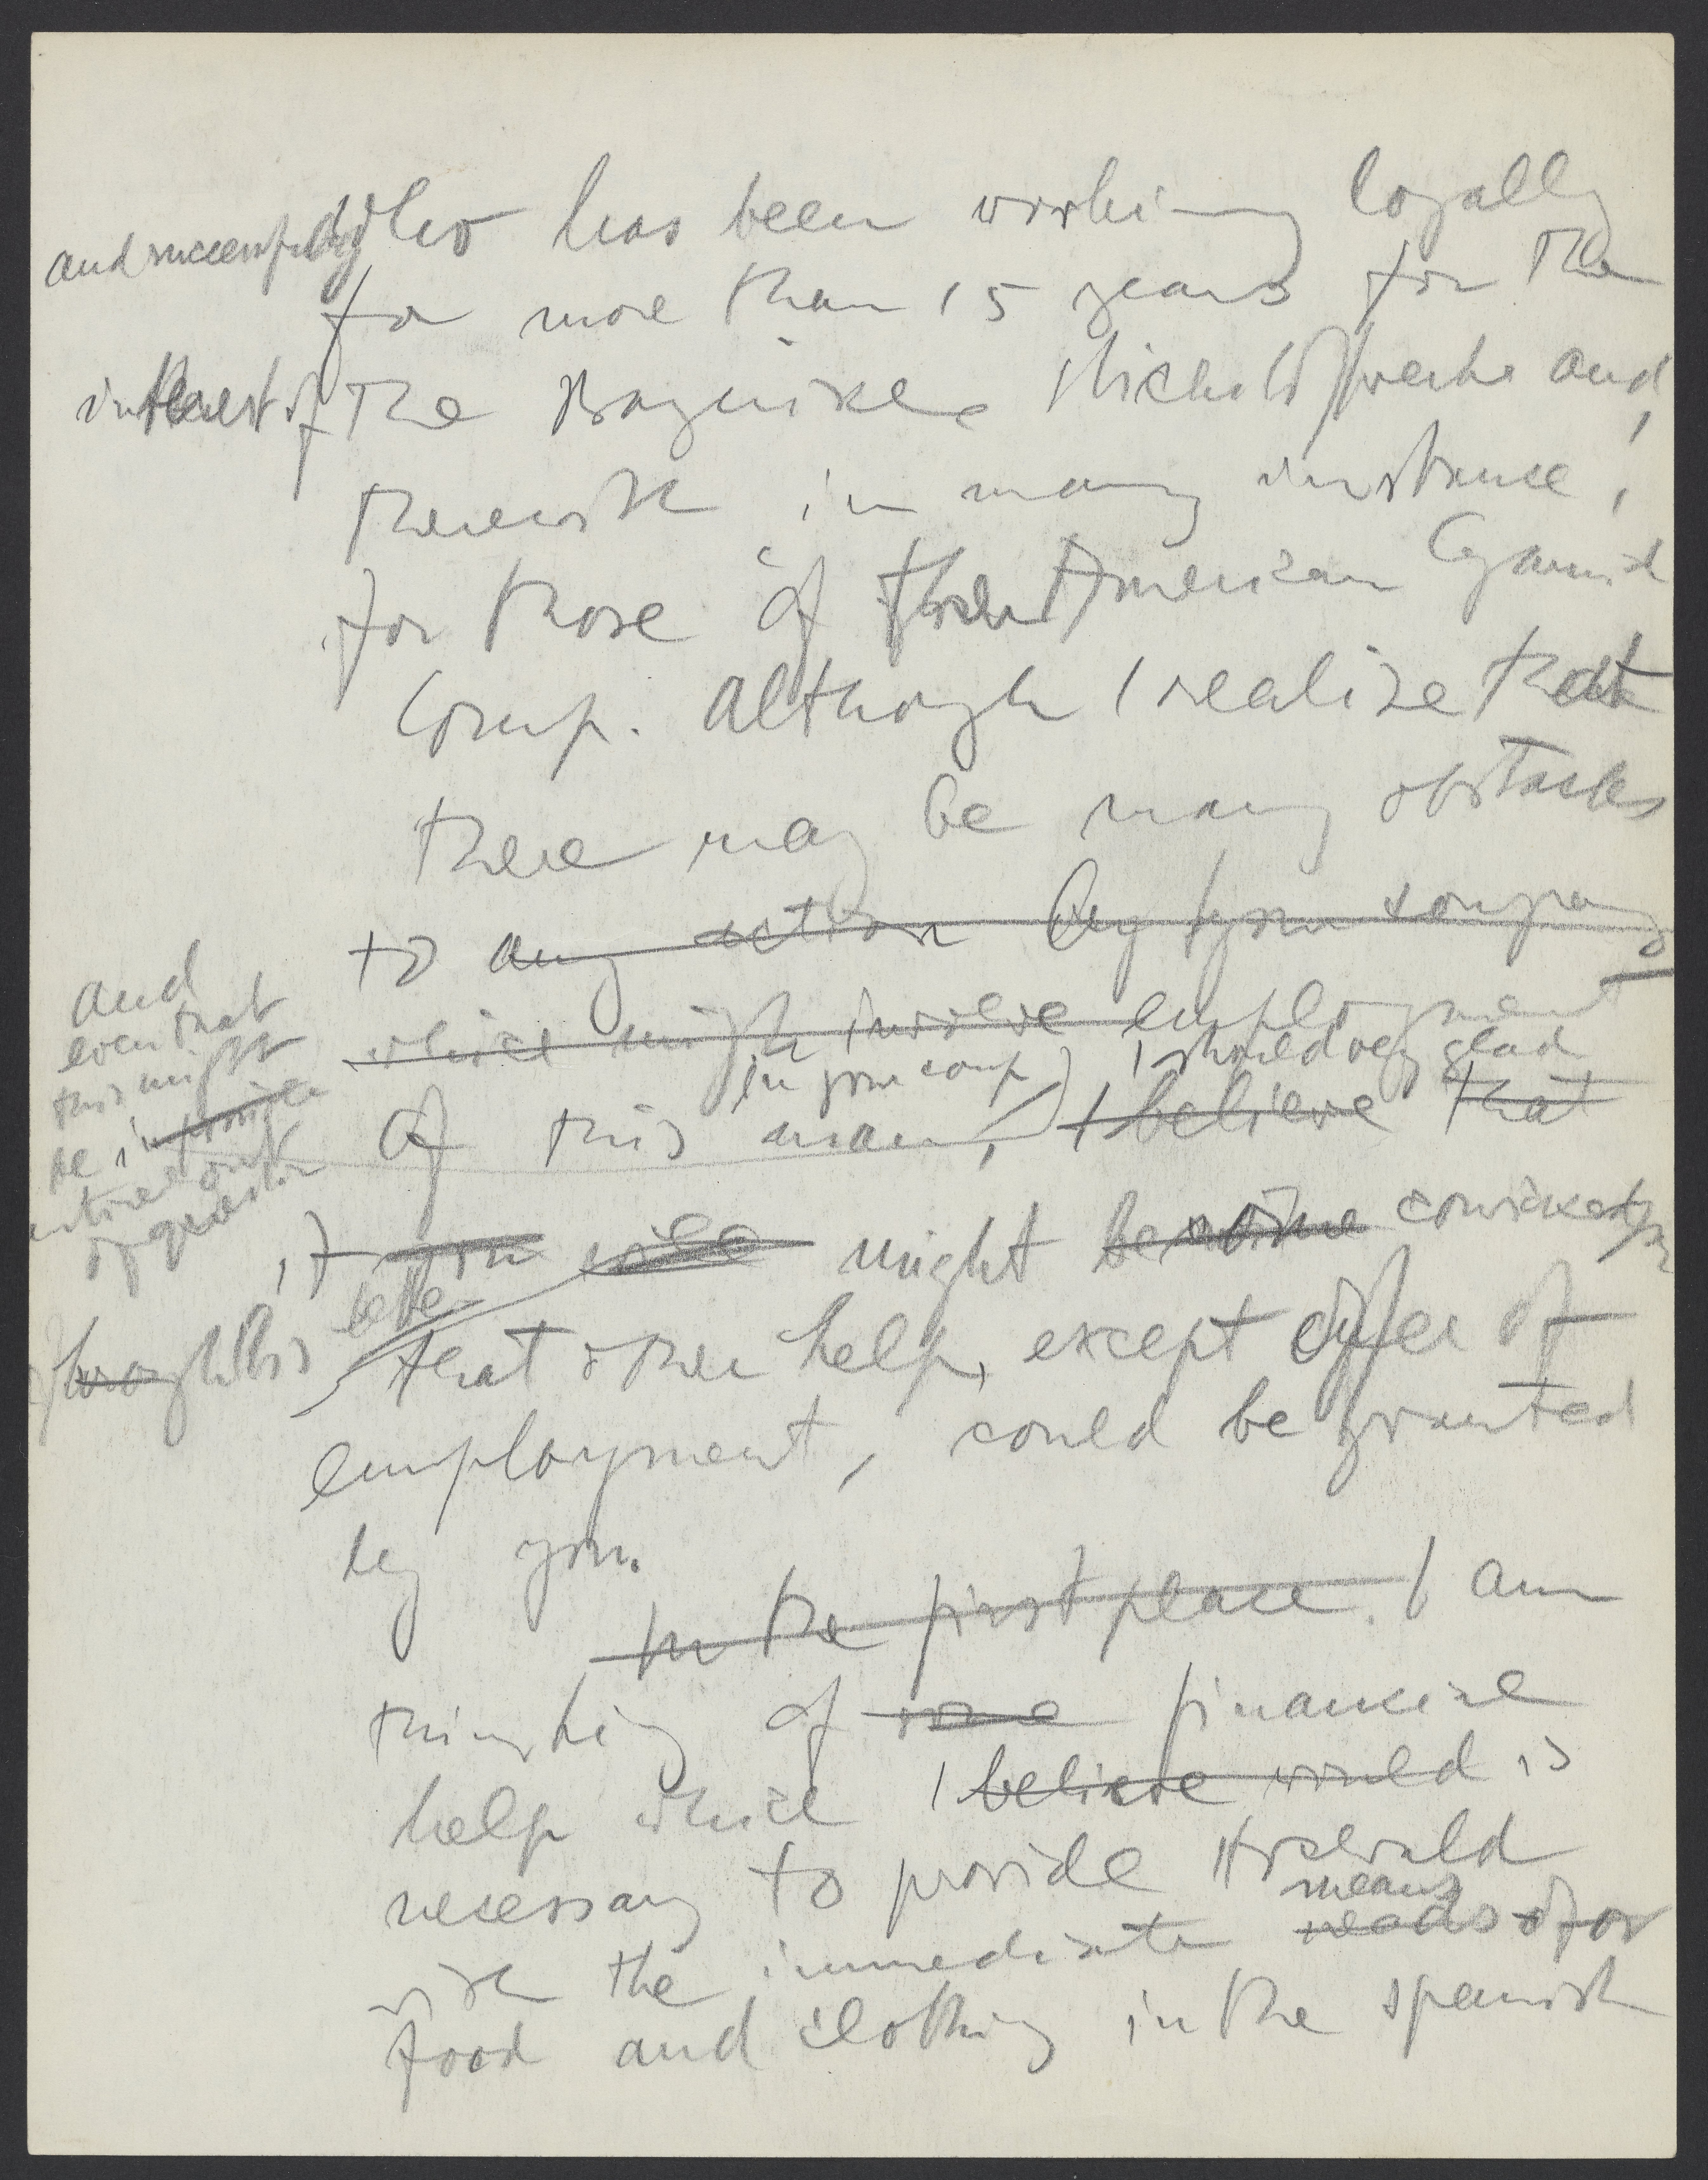 who has been working loyally
and successfully
for more than 15 years for the
interest of the Bayrische Stickstoffwerke and,
therewith in many instance,
for those of the American Cyanid
Comp. Although I realize that
there may be many obstacles
to any action by your company
which might involve employment
and
even that
this might
be impossible
entirely out
of question
in your comp) I should very glad
of this man, I believe that
if you will might be convinced
through this
better
that other help, except offer of
employment, could be granted
by you.
In the first place. I am
thinking of some financial
help which I believe would is
necessary to provide Hoslewald
means
with the immediate needs of for
food and clothing in the spanish